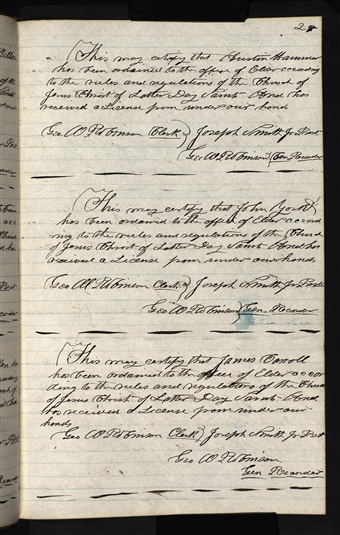 28
This may certify that Austin Hammer
has been ordained to the office of Elder according
to the rules and regulations of the Church of
Jesus Christ of Latter Day Saints And has
received a License from under our hands
Geo. W Robinson Clerk } Joseph Smith Jr Prest
Geo. W Robinson } Gen Recorder
This may certify that John York
has been ordained to the office of Elder accord
ing to the rules and regulations of the Church
of Jesus Christ of Latter Day Saints And he has
received a License from under our hands
Geo W Robinson Clerk } Joseph Smith Jr Prest
Geo W Robinson } Gen. Recorder
This may certify that James Carroll
has been ordained to the office of Elder accor
ding to the rules and regulations of the Church
of Jesus Christ of Latter Day Saints And
has received a License from under our
hands
Geo W Robinson Clerk } Joseph Smith Jr Prest
Geo W Robinson
Gen Recorder